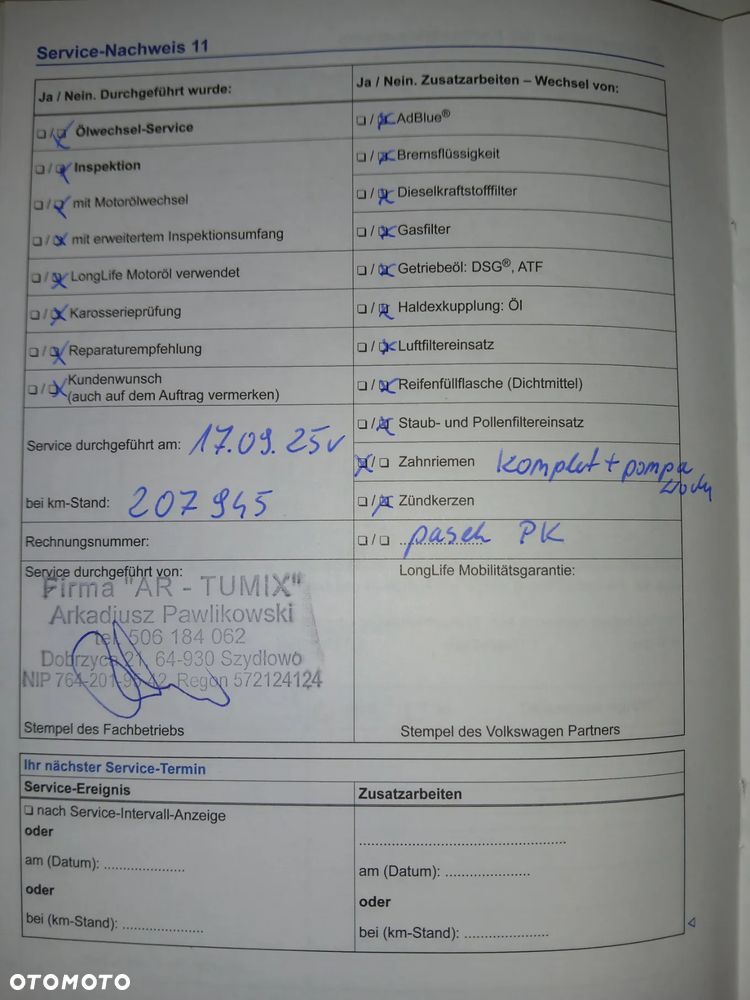 Service-Nachweis 11
Ja / Nein. Durchgeführt wurde:
❑ / ❑ Ölwechsel-Service
❑ / ❑ Inspektion
❑ / ❑ mit Motorölwechsel
❑ / ❑ mit erweitertem Inspektionsumfang
❑ / ❑ LongLife Motoröl verwendet
❑ / ❑ Karosserieprüfung
❑ / ❑ Reparaturempfehlung
❑ / ❑ Kundenwunsch
(auch auf dem Auftrag vermerken)
Service durchgeführt am: 17.09.25r
bei km-Stand: 207 945
Rechnungsnummer:
Service durchgeführt von:
Firma "AR - TUMIX"
Arkadiusz Pawlikowski
tel. 506 184 062
Dobrzyca 21, 64-930 Szydłowo
NIP 764-201-95-42, Regon 572124124
Stempel des Fachbetriebs
Ja / Nein. Zusatzarbeiten – Wechsel von:
❑ / ❑ AdBlue®
❑ / ❑ Bremsflüssigkeit
❑ / ❑ Dieselkraftstofffilter
❑ / ❑ Gasfilter
❑ / ❑ Getriebeöl: DSG®, ATF
❑ / ❑ Haldexkupplung: Öl
❑ / ❑ Luftfiltereinsatz
❑ / ❑ Reifenfüllflasche (Dichtmittel)
❑ / ❑ Staub- und Pollenfiltereinsatz
❑ / ❑ Zahnriemen komplet + pompa
wody
❑ / ❑ Zündkerzen
❑ / ❑ pasek PK
LongLife Mobilitätsgarantie:
Stempel des Volkswagen Partners
Ihr nächster Service-Termin
Service-Ereignis
❑ nach Service-Intervall-Anzeige
oder
am (Datum): ....................
oder
bei (km-Stand): ....................
Zusatzarbeiten
....................
am (Datum): ....................
oder
bei (km-Stand): ....................
OTOMOTO